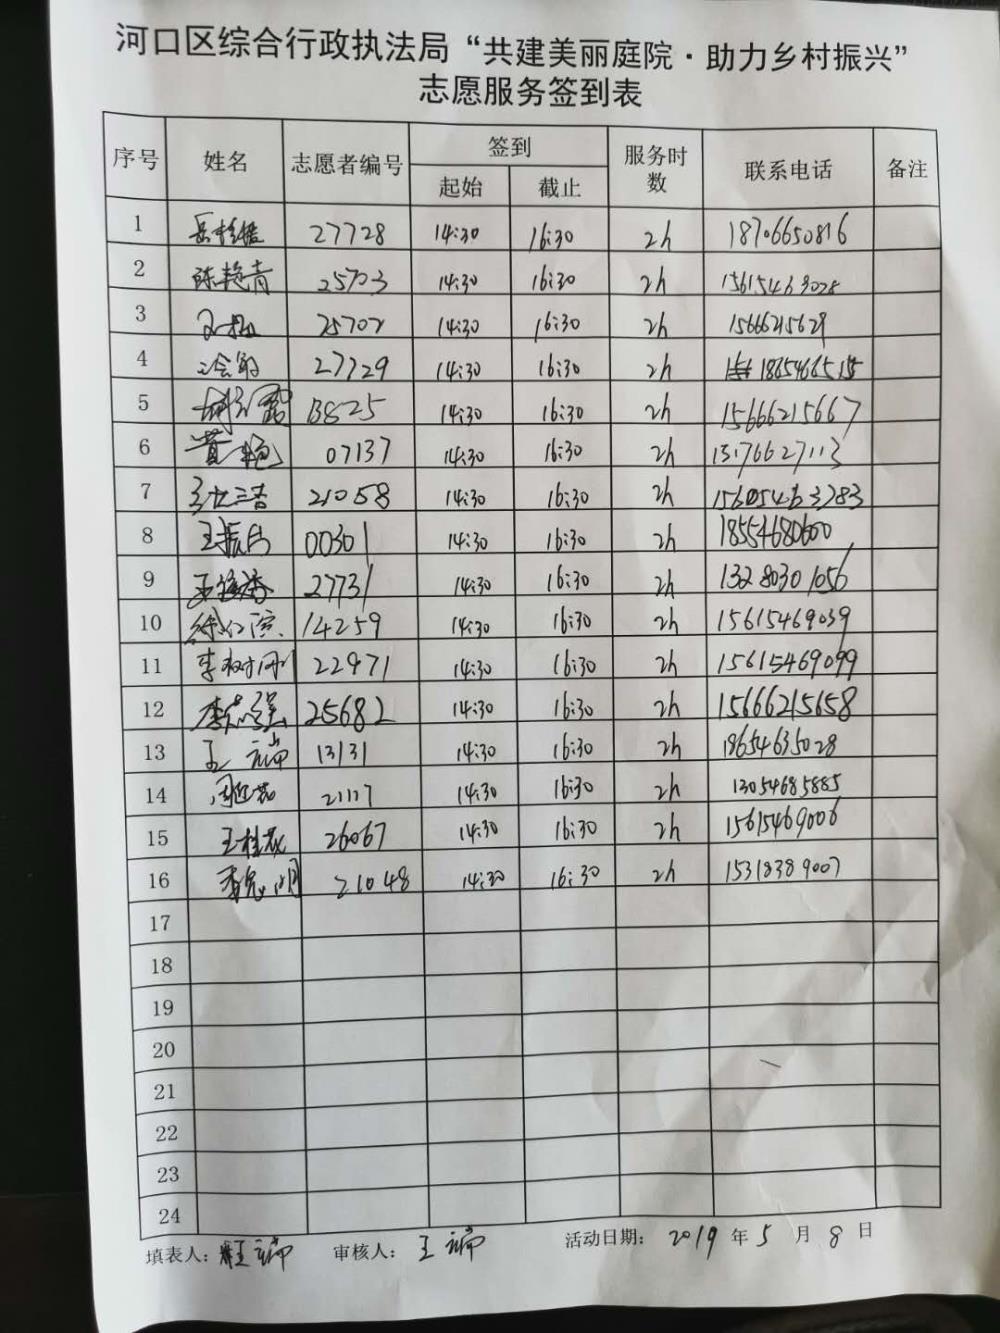 河口区综合行政执法局“共建美丽庭院·助力乡村振兴”
志愿服务签到表
序号 姓名 志愿者编号 签到 服务时数 联系电话 备注
起始 截止
1 27728 14:30 16:30 2h 18706650816
2 陈艳青 25703 14:30 16:30 2h 15615463028
3 25702 14:30 16:30 2h 15666215629
4 27729 14:30 16:30 2h
5 14:30 16:30 2h 15666215667
6 黄艳 07137 14:30 16:30 2h 15176627113
7 21058 14:30 16:30 2h
8 王振兵 00301 14:30 16:30 2h 18554680600
9 27731 14:30 16:30 2h 13280301056
10 14259 14:30 16:30 2h 15615469039
11 李树同 22971 14:30 16:30 2h 15615469099
12 李志强 25682 14:30 16:30 2h 15666215658
13 王谛 13131 14:30 16:30 2h 18654635028
14 21117 14:30 16:30 2h 13054685885
15 王桂花 26067 14:30 16:30 2h 15615469006
16 21048 14:30 16:30 2h 15318389007
17
18
19
20
21
22
23
24
填表人: 王谛 审核人: 王谛 活动日期: 2019 年 5 月 8 日